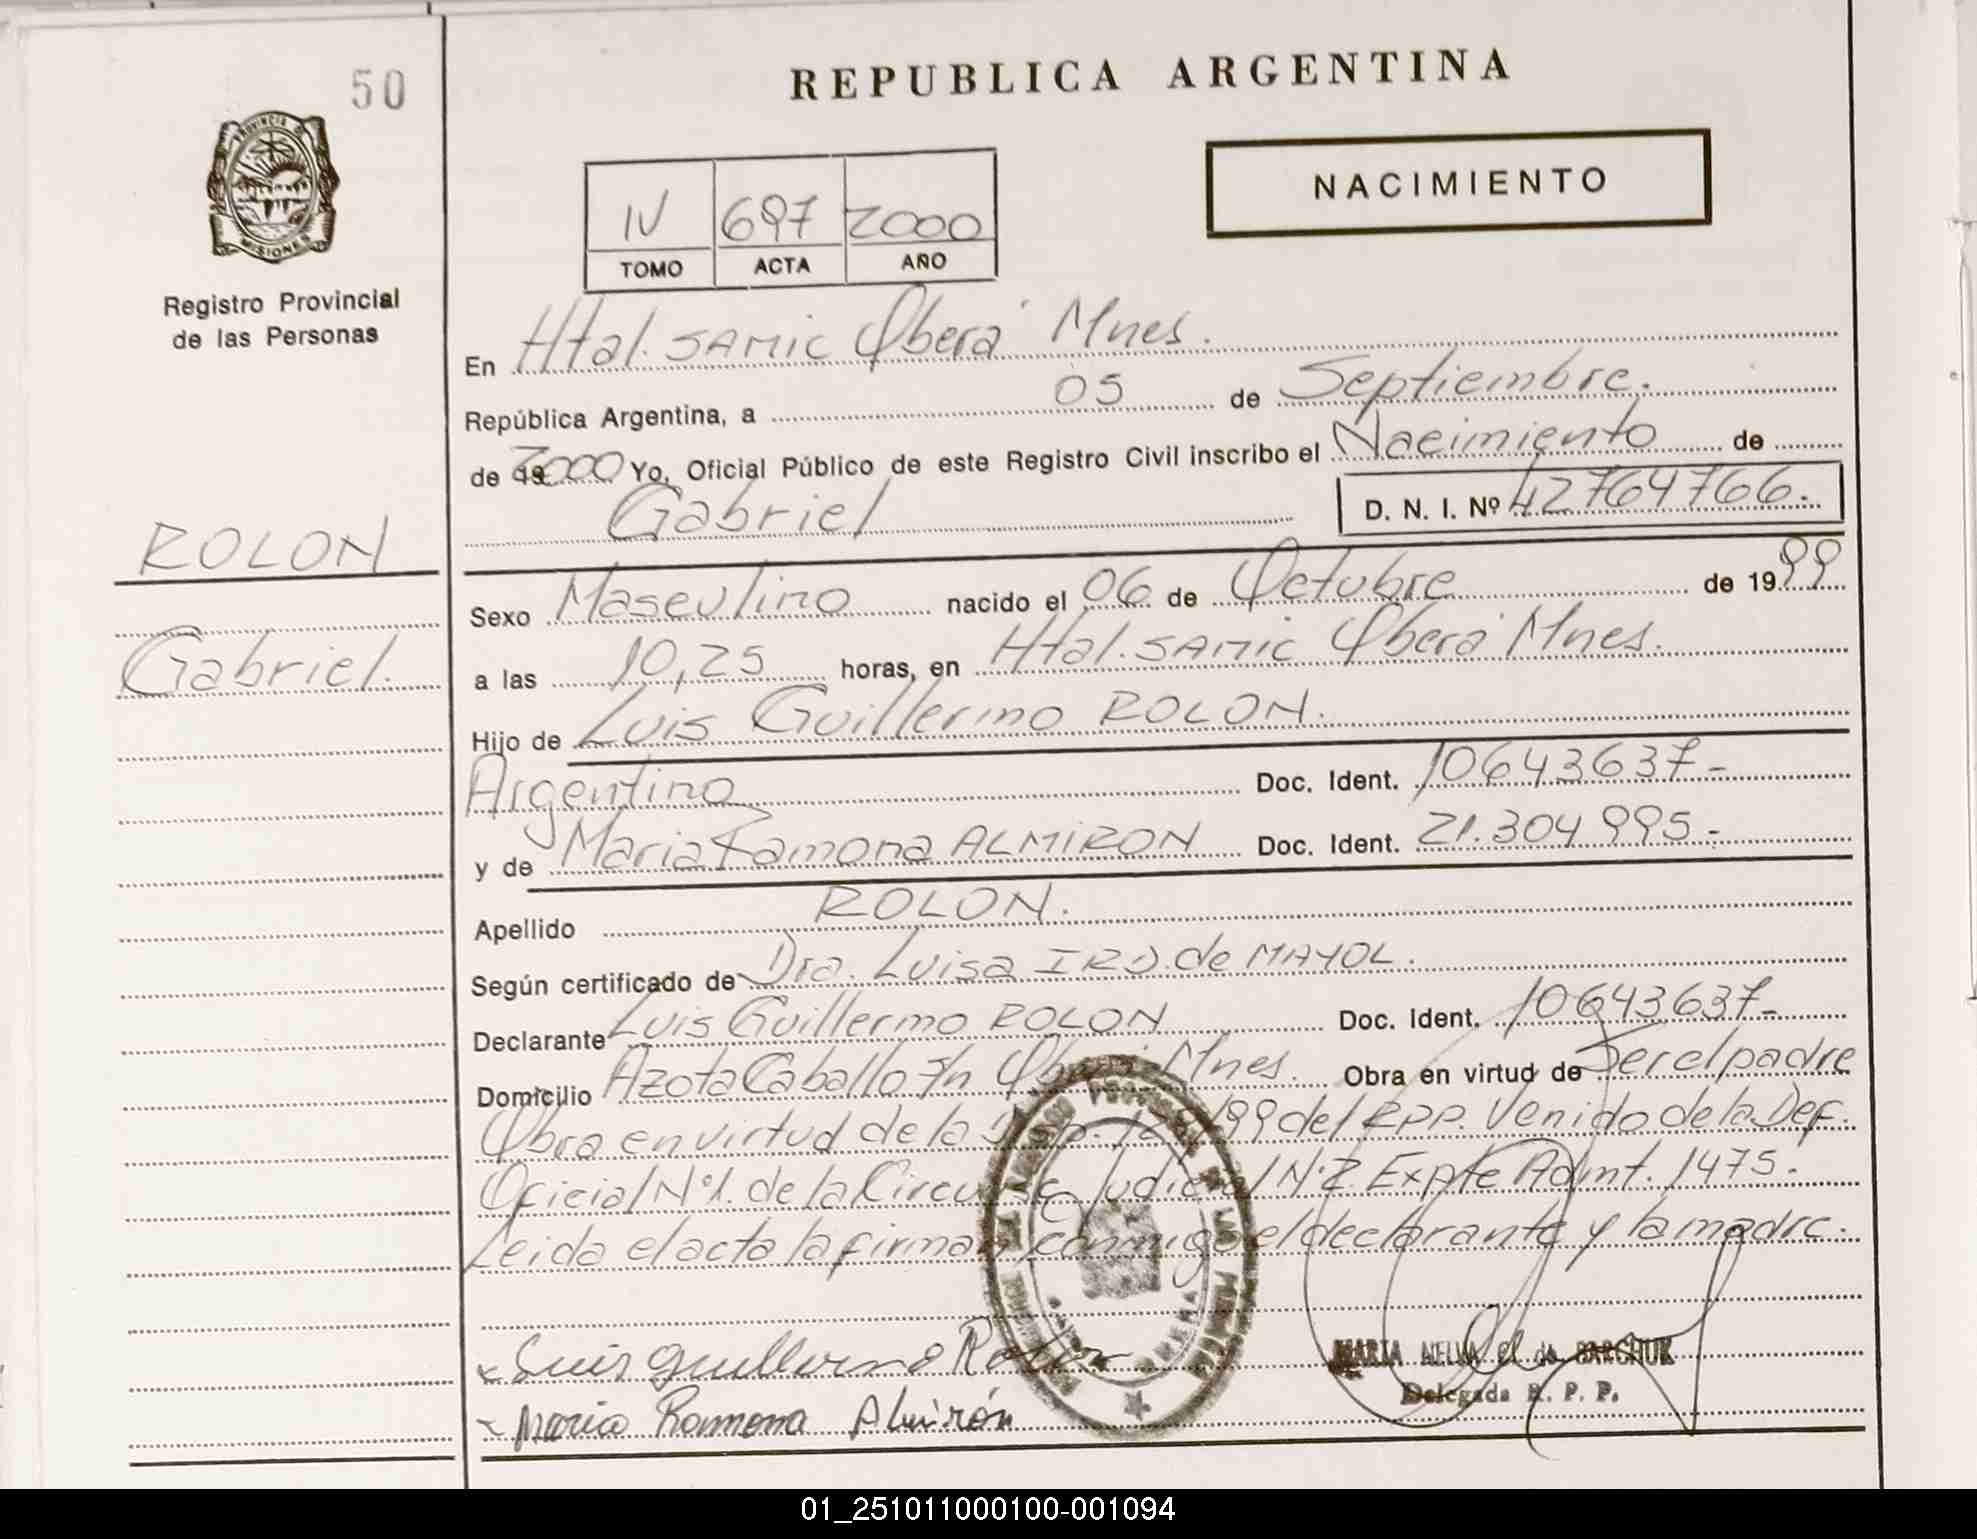 50
REPUBLICA ARGENTINA
PROVINCIA DE
MISIONES
Registro Provincial
de las Personas
NACIMIENTO
IV 697 2000
TOMO ACTA AÑO
En Htal. SAMIC Oberá Mnes.
República Argentina, a 05 de Septiembre.
de 2000 Yo, Oficial Público de este Registro Civil inscribo el Nacimiento de
Gabriel D. N. I. Nº 42764766.-
ROLON
Gabriel.
Sexo Masculino nacido el 06 de Octubre de 1999
a las 10,25 horas, en Htal. SAMIC Oberá Mnes.
Hijo de Luis Guillermo ROLON.
Argentino Doc. Ident. 10643637-
y de Maria Ramona ALMIRON Doc. Ident. 21.304.995.-
Apellido ROLON.
Según certificado de Dra. Luisa de MAYOL.
Declarante Luis Guillermo ROLON Doc. Ident. 10643637-
Domicilio Azota Caballo s/n Oberá Mnes. Obra en virtud de Ser el padre
Obra en virtud de la /99 del RPP. Venido de la Def.
Oficial Nº1. de la Circunsc. Judicial N·2. Expte Admt. 1475.-
Leida el acta la firman conmigo el declarante y la madre.-
Luis Guillermo Rolon
Maria Ramona Almirón
MARIA de BARCHUK
Delegada R. P. P.
01_251011000100-001094